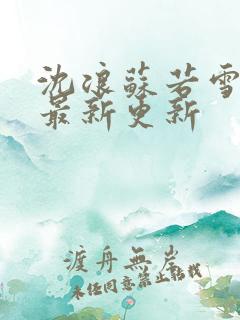 沈浪蘇若雪
最新更新
渡舟無岸
未经同意禁止转载